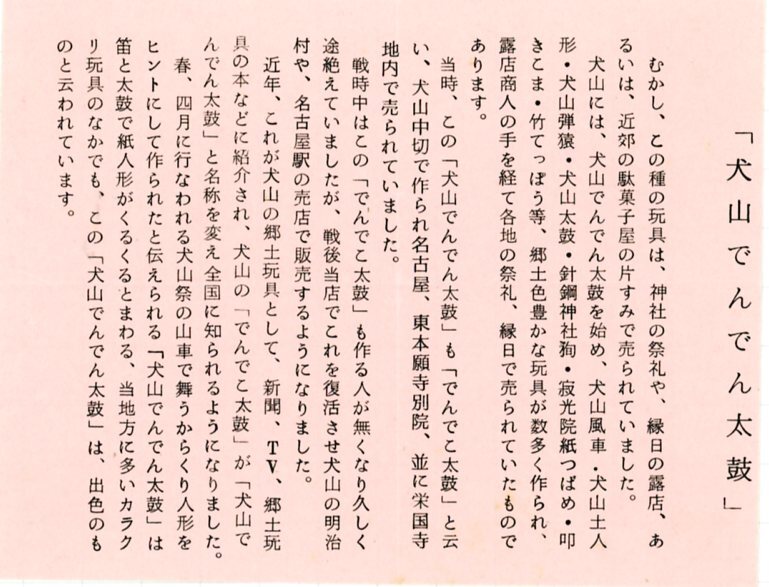 「犬山でんでん太鼓」
むかし、この種の玩具は、神社の祭礼や、縁日の露店、あ
るいは、近郊の駄菓子屋の片すみで売られていました。
犬山には、犬山でんでん太鼓を始め、犬山風車・犬山土人
形・犬山弾猿・犬山太鼓・針鋼神社狗・寂光院紙つばめ・叩
きこま・竹てっぽう等、郷土色豊かな玩具が数多く作られ、
露店商人の手を経て各地の祭礼、縁日で売られていたもので
あります。
当時、この「犬山でんでん太鼓」も「でんでこ太鼓」と云
い、犬山中切で作られ名古屋、東本願寺別院、並に栄国寺
地内で売られていました。
戦時中はこの「でんでこ太鼓」も作る人が無くなり久しく
途絶えていましたが、戦後当店でこれを復活させ犬山の明治
村や、名古屋駅の売店で販売するようになりました。
近年、これが犬山の郷土玩具として、新聞、TV、郷土玩
具の本などに紹介され、犬山の「でんでこ太鼓」が「犬山で
んでん太鼓」と名称を変え全国に知られるようになりました。
春、四月に行なわれる犬山祭の山車で舞うからくり人形を
ヒントにして作られたと伝えられる「犬山でんでん太鼓」は
笛と太鼓で紙人形がくるくるとまわる、当地方に多いカラク
リ玩具のなかでも、この「犬山でんでん太鼓」は、出色のも
のと云われています。